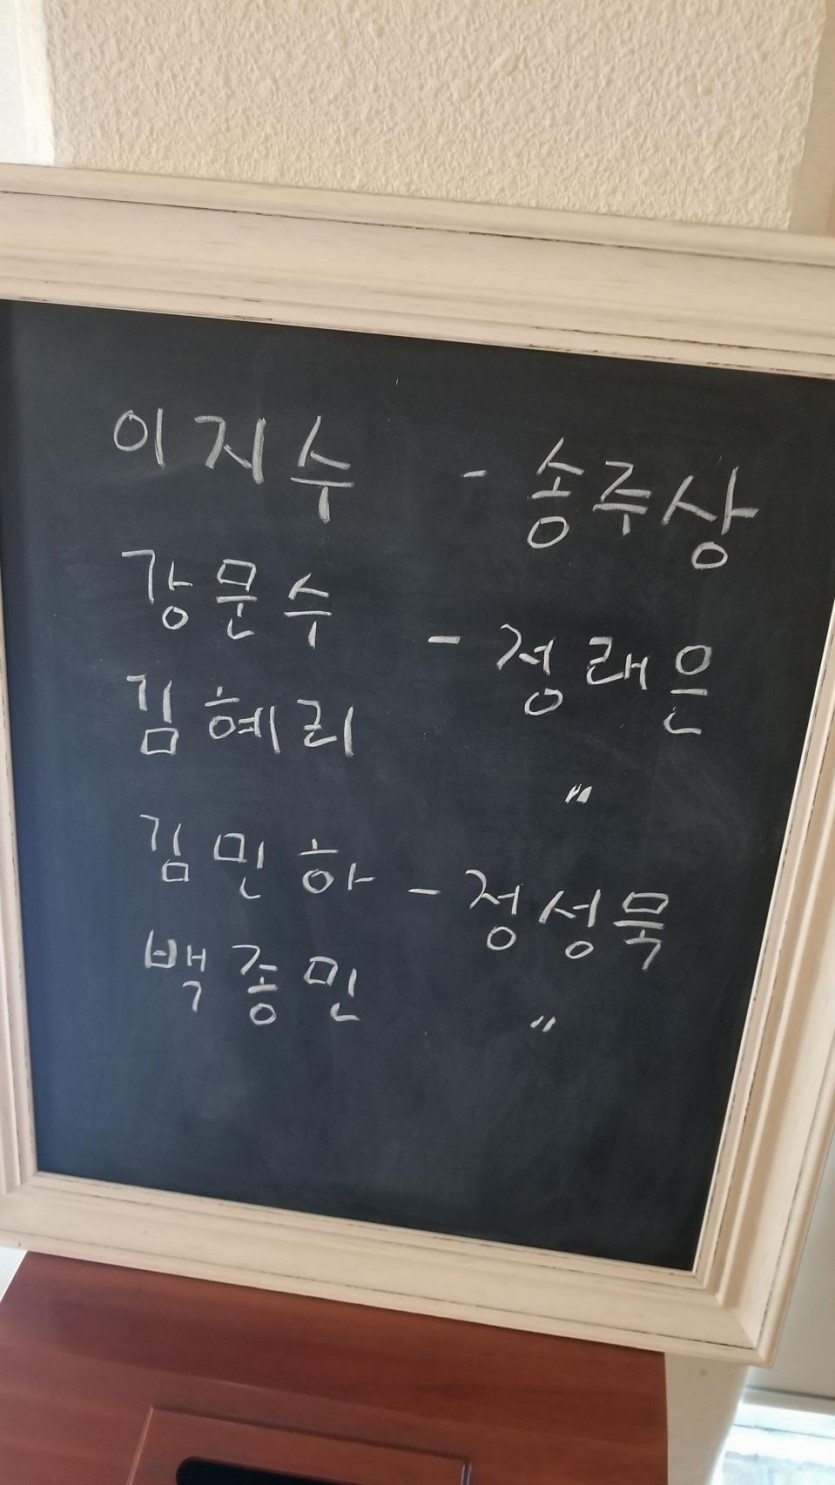 이지수 - 송주상
강문수 - 정래은
김혜리 〃
김민하 - 정성묵
백종민 〃